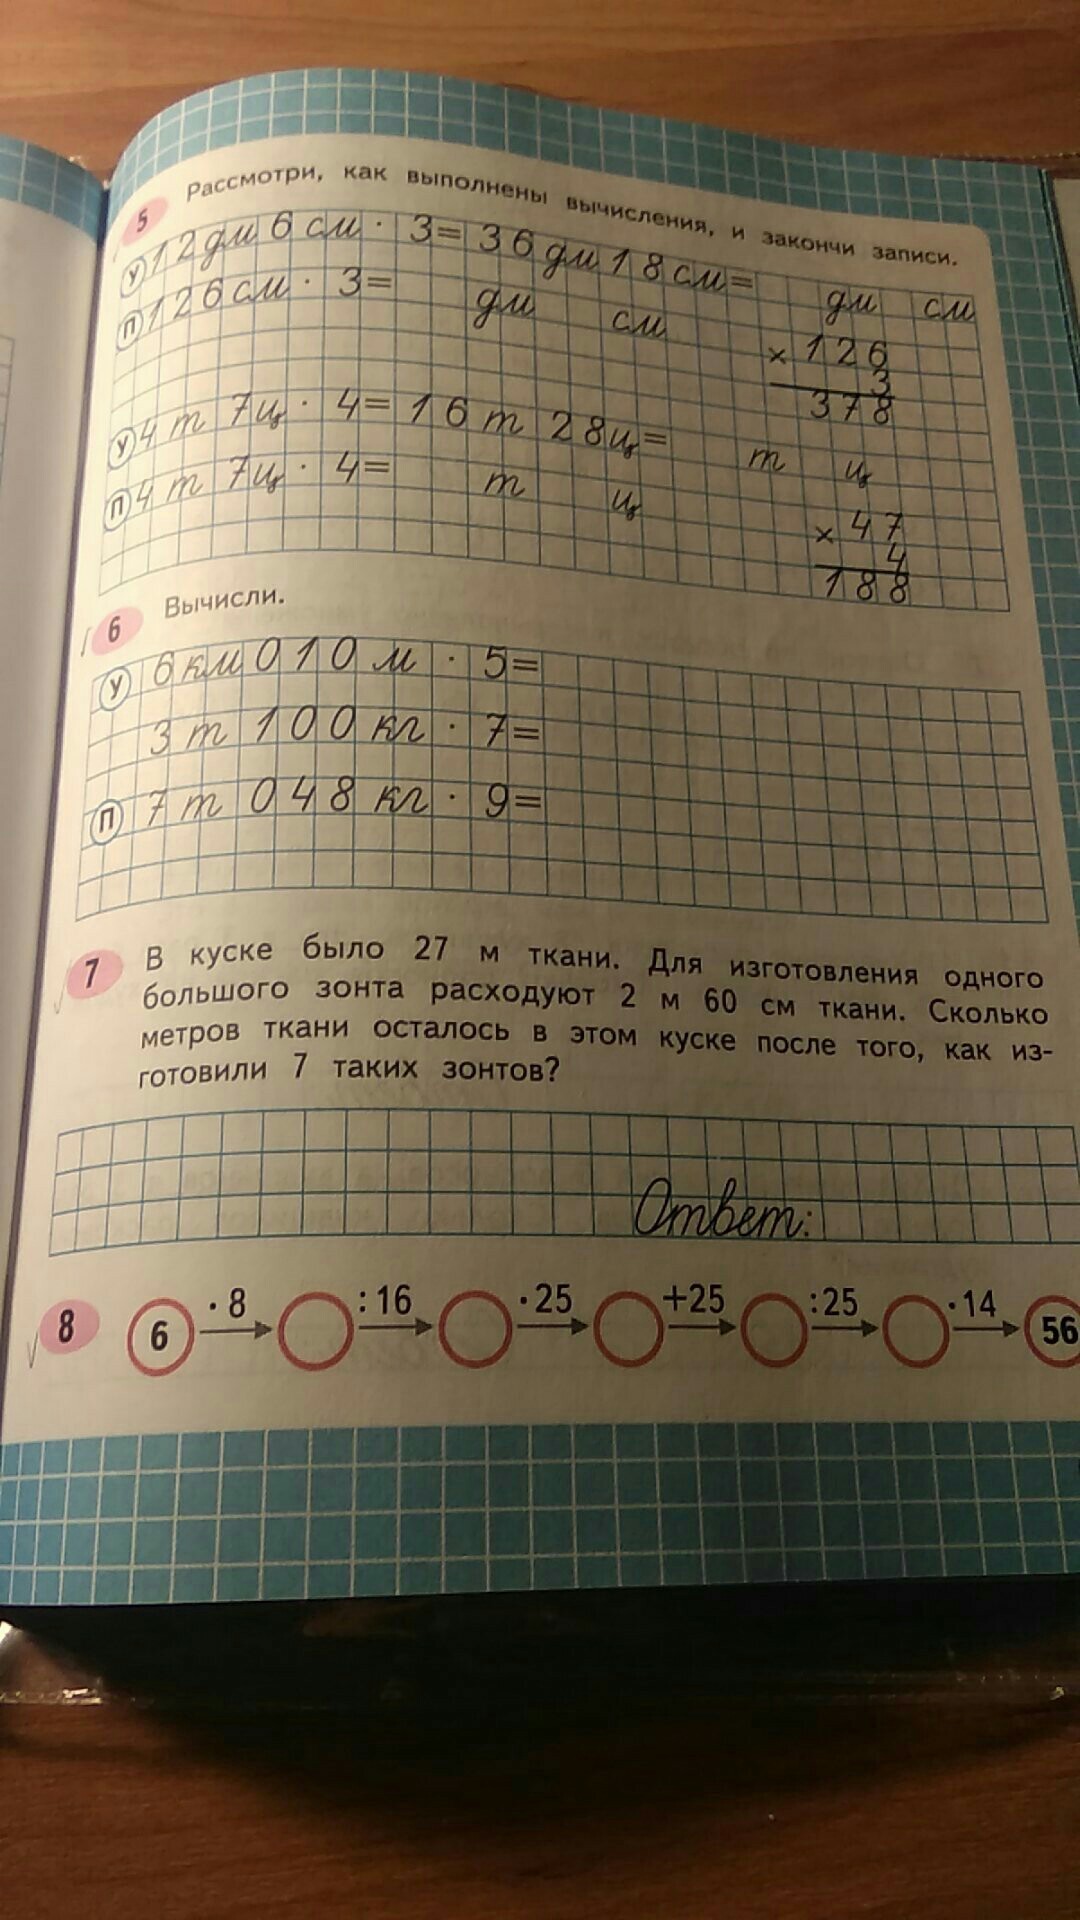 5 Рассмотри, как выполнены вычисления, и закончи записи.
У 12 дм 6 см · 3 = 36 дм 18 см = дм см
П 126 см · 3 = дм см
× 126
3
378
У 4 т 7 ц · 4 = 16 т 28 ц = т ц
П 4 т 7 ц · 4 = т ц
× 47
4
188
6 Вычисли.
У 6 км 010 м · 5 =
3 т 100 кг · 7 =
П 7 т 048 кг · 9 =
7 В куске было 27 м ткани. Для изготовления одного
большого зонта расходуют 2 м 60 см ткани. Сколько
метров ткани осталось в этом куске после того, как из-
готовили 7 таких зонтов?
Ответ:
8 6 · 8 : 16 · 25 +25 : 25 · 14 56